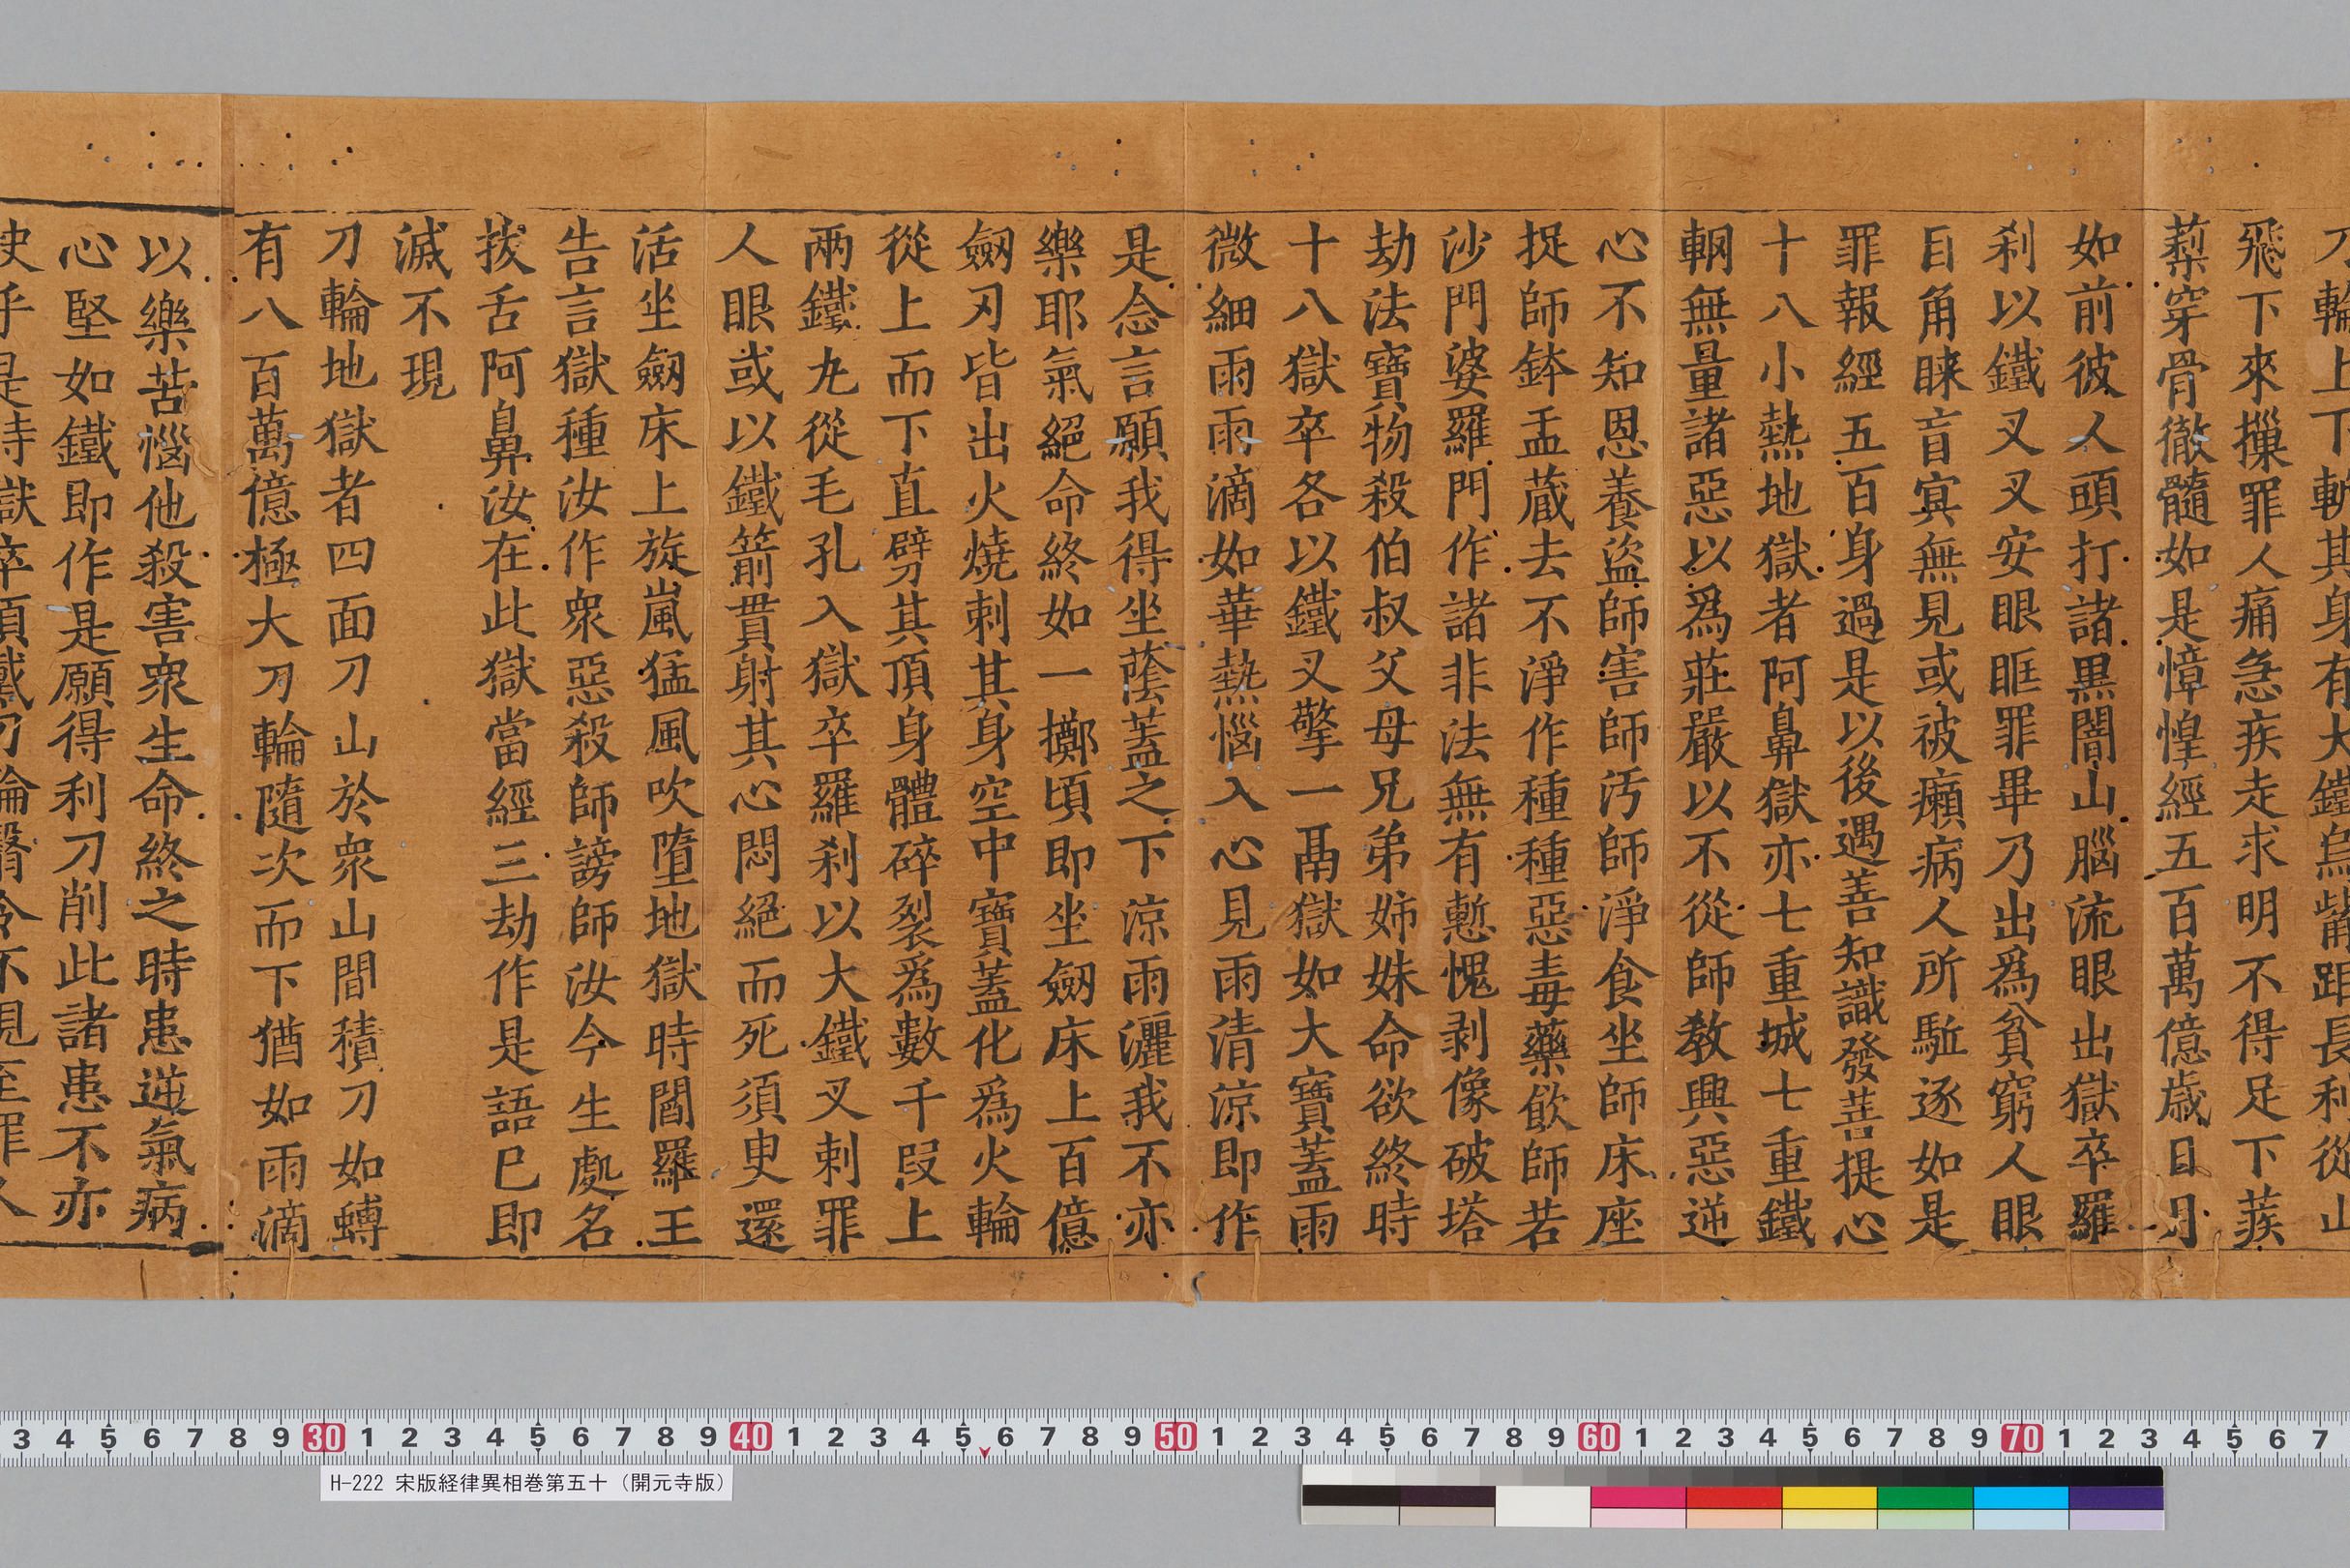 刀輪上下斬其身有大鐵烏觜距長利從山
飛下來摷罪人痛急疾走求明不得足下蒺
䔧穿骨徹髓如是慞惶經五百萬億歲日月
如前彼人頭打諸黑闇山腦流眼出獄卒羅
刹以鐵叉叉安眼眶罪畢乃出爲貧窮人眼
目角睞盲冥無見或被癩病人所駈逐如是
罪報經五百身過是以後遇善知識發菩提心
十八小熱地獄者阿鼻獄亦七重城七重鐵
輞無量諸惡以爲莊嚴以不從師教興惡逆
心不知恩養盜師害師汚師淨食坐師床座
捉師鉢盂蔵去不淨作種種惡毒藥飲師若
沙門婆羅門作諸非法無有慙愧剥像破塔
劫法寶物殺伯叔父母兄弟姉妹命欲終時
十八獄卒各以鐵叉擎一鬲獄如大寶蓋雨
微細雨雨滴如華熱惱入心見雨清涼即作
是念言願我得坐蔭蓋之下涼雨灑我不亦
樂耶氣絕命終如一擲頃即坐劒床上百億
劒刃皆出火燒刺其身空中寶蓋化爲火輪
從上而下直劈其頂身體碎裂爲數千段上
兩鐵丸從毛孔入獄卒羅刹以大鐵叉刺罪
人眼或以鐵箭貫射其心悶絕而死須臾還
活坐劒床上旋嵐猛風吹墮地獄時閻羅王
告言獄種汝作衆惡殺師謗師汝今生處名
拔舌阿鼻汝在此獄當經三劫作是語已即
滅不現
刀輪地獄者四面刀山於衆山間積刀如塼
有八百萬億極大刀輪隨次而下猶如雨滴
以樂苦惱他殺害衆生命終之時患逆氣病
心堅如鐵即作是願得利刀削此諸患不亦
快乎是時獄卒頂戴刀輪
3 4 5 6 7 8 9 30 1 2 3 4 5 6 7 8 9 40 1 2 3 4 5 6 7 8 9 50 1 2 3 4 5 6 7 8 9 60 1 2 3 4 5 6 7 8 9 70 1 2 3 4 5 6 7
H-222 宋版経律異相巻第五十（開元寺版）